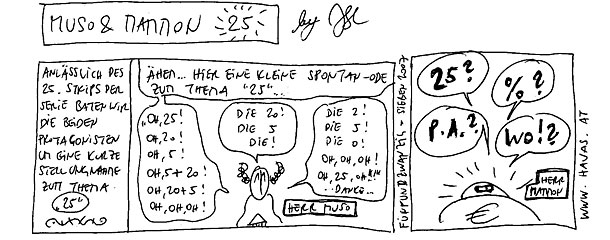 MUSO & MAMMON "25"
by
ANLÄSSLICH DES
25. STRIPS DER
SERIE BATEN WIR
DIE BEIDEN
PROTAGONISTEN
UM EINE KURZE
STELLUNGNAHME
ZUM THEMA
"25"
ÄHEM... HIER EINE KLEINE SPONTAN-ODE
ZUM THEMA "25"...
"OH, 25!
OH, 20!
OH, 5!
OH, 5+20!
OH, 20+5!
OH, OH, OH!
DIE 20!
DIE 5
DIE!
DIE 2!
DIE 5!
DIE 0!
OH, OH, OH!
OH, 25, OH"
..DANKE...
HERR MUSO
2007
25?
%?
P.A.?
WO!?
HERR
MAMMON
€
WWW.HAVAS.AT